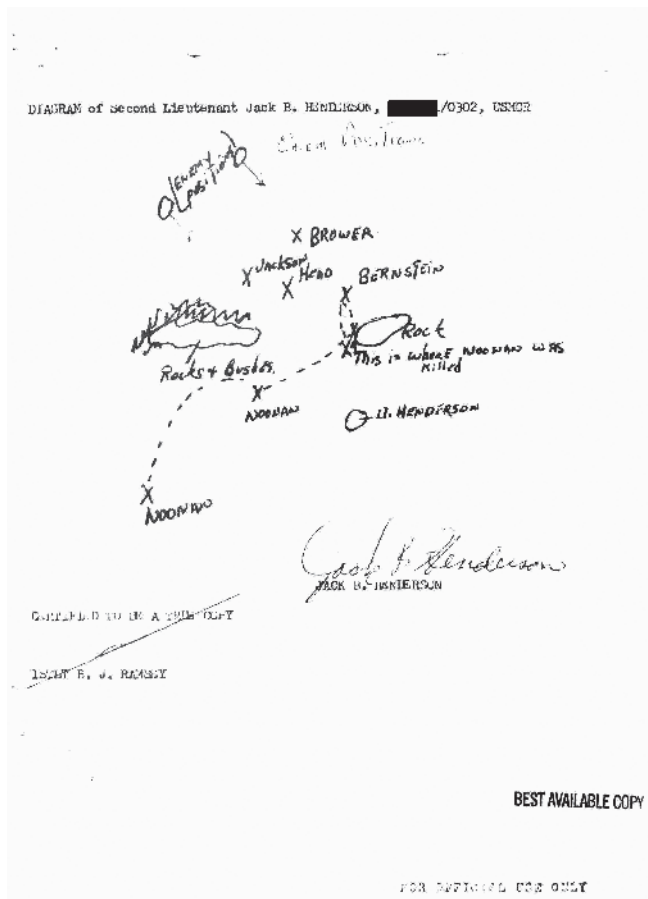 DIAGRAM of Second Lieutenant Jack B. HENDERSON, /0302, USMCR
Enem Positions
ENEMY
POSITION
X BROWER
X JACKSON
X HEAD
BERNSTEIN
X
Rock
X
X
This is where NOONAN WAS
Killed
Rocks + Bushes
X
NOONAN
Lt. HENDERSON
X
NOONAN
Jack B Henderson
JACK B. HENDERSON
CERTIFIED TO BE A TRUE COPY
1STLT R. J. RAMSEY
BEST AVAILABLE COPY
FOR OFFICIAL USE ONLY